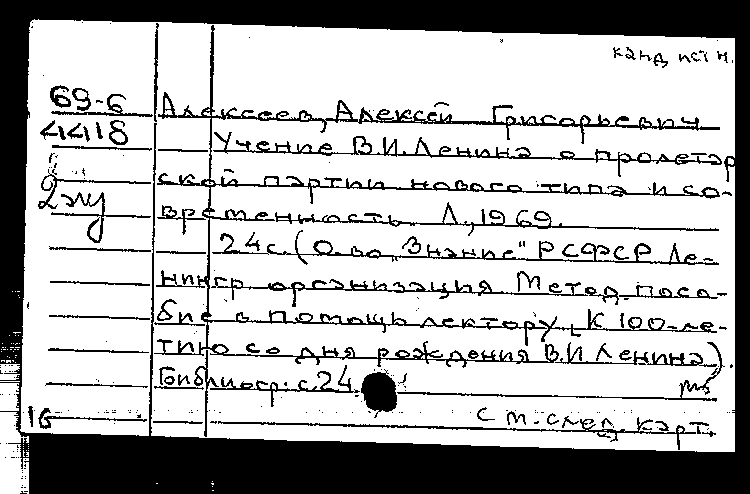 канд. ист. н.
69-6 Алексеев, Алексей Григорьевич
4418 Учение В.И. Ленина о пролетар
2 эку ской партии нового типа и со-
временность. Л., 1969.
24 с. (О-во "Знание" РСФСР Ле-
нингр. организация Метод. посо-
бие в помощь лектору. К 100-ле-
тию со дня рождения В.И. Ленина).
Библиогр.: с. 24.
См. след. карт.
16